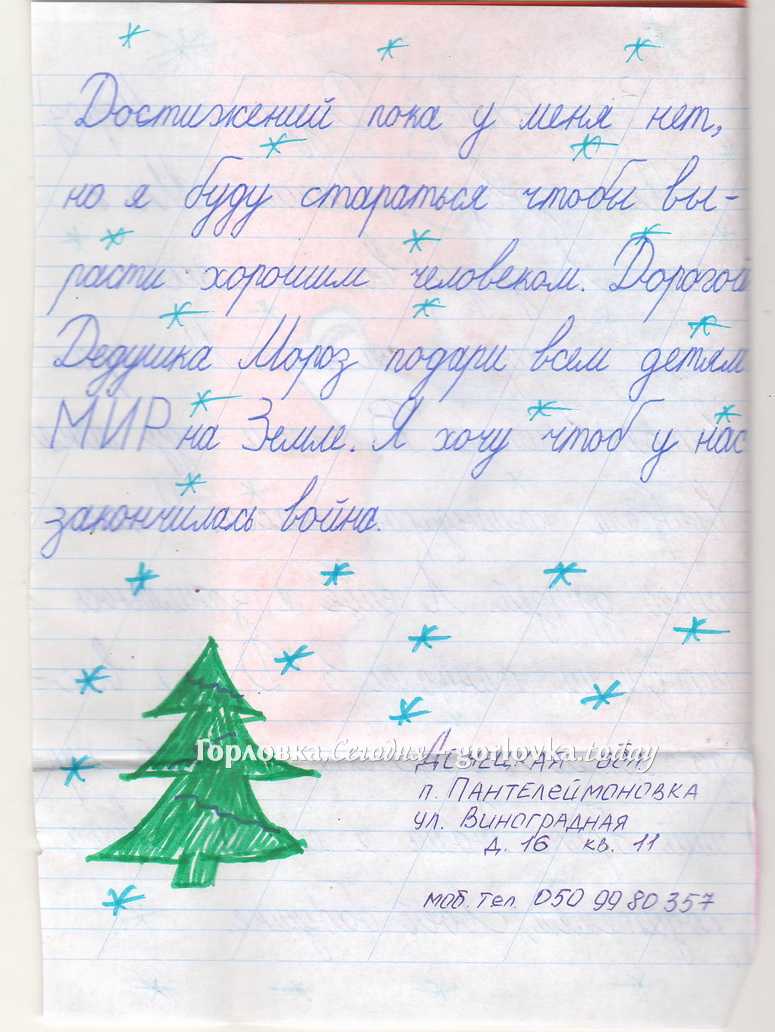 Достижений пока у меня нет,
но я буду стараться чтобы вы-
расти хорошим человеком. Дорогой
Дедушка Мороз подари всем детям
МИР на Земле. Я хочу чтоб у нас
закончилась война.
Горловка.Сегодня - gorlovka.today
Донецкая обл.
п. Пантелеймоновка
ул. Виноградная
д. 16 кв. 11
моб. тел. 050 99 80 357